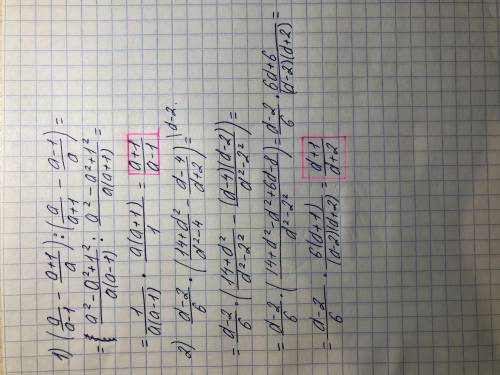 1) (a/(a-1) - (a+1)/a) : (a/(a+1) - (a-1)/a) =
= (a²-a²+1²)/(a(a-1)) : (a²-a²+1²)/(a(a+1)) =
= 1/(a(a-1)) · a(a+1)/1 = (a+1)/(a-1)
2) (d-2)/6 · ((14+d²)/(d²-4) - (d-4)/(d+2)) = \d-2
= (d-2)/6 · ((14+d²)/(d²-2²) - (d-4)(d-2)/(d²-2²)) =
= (d-2)/6 · ((14+d²-d²+6d-8)/(d²-2²)) = (d-2)/6 · (6d+6)/((d-2)(d+2)) =
= (d-2)/6 · 6(d+1)/((d-2)(d+2)) = (d+1)/(d+2)